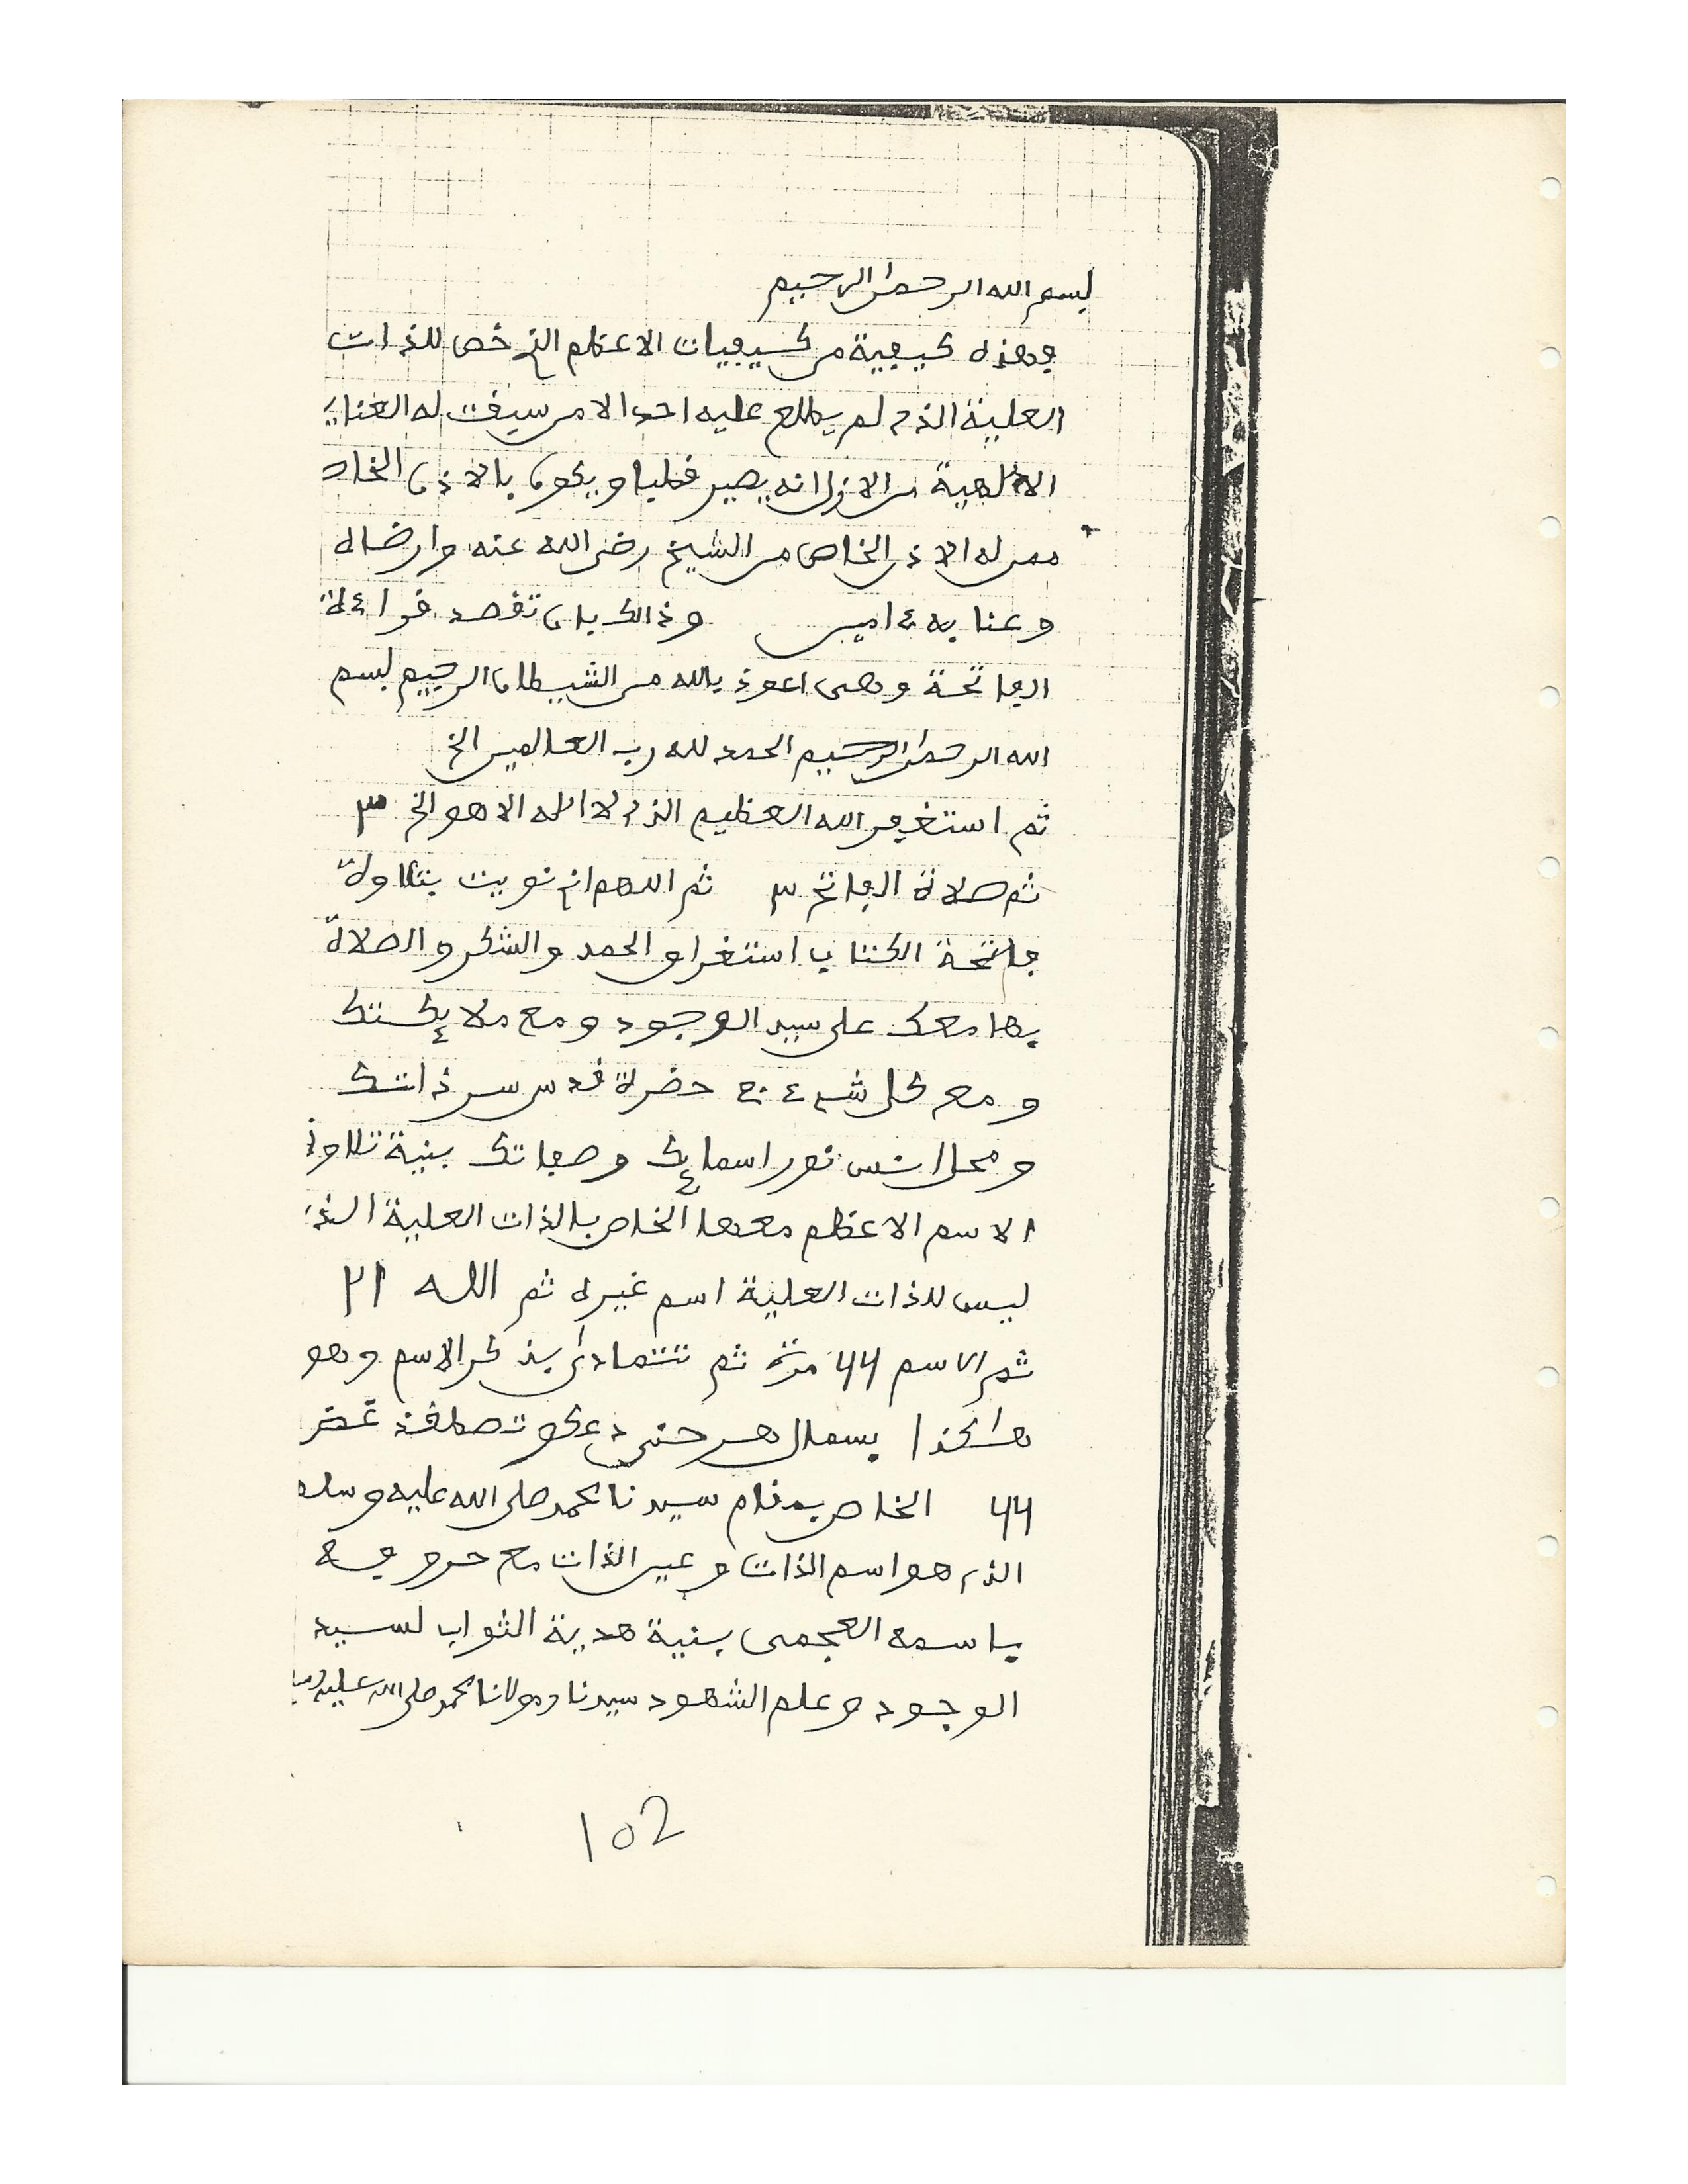 بسم الله الرحمن الرحيم
وهذه كيفية من كيفيات الاعظم الذي خص للذات
العلية الذي لم يطلع عليه احد الا من سبقت له العناي
الالهية من الازل انه يصير قطبا ويكون بالاذن الخاص
ممن له الاذن الخاص من الشيخ رضي الله عنه وارضاه
وعنا به ءامين وذالك بان تقصد قراءة
الفاتحة وهى اعوذ بالله من الشيطان الرجيم بسم
الله الرحمن الرحيم الحمد لله رب العالمين الخ
ثم استغفر الله العظيم الذي لا اله الا هو الخ ٣
ثم صلاة الفاتح ٣ ثم اللهم اني نويت بتلاوة
فاتحة الكتاب استغراق الحمد والشكر والصلاة
بها معك على سيد الوجود ومع ملائكتك
ومع كل شيء في حضرة قدس سر ذاتك
ومحل انس نور اسمائك وصفاتك بنية تلاوة
الاسم الاعظم معها الخاص بالذات العلية الذي
ليس للذات العلية اسم غيره ثم الله ٢١
ثم الاسم 44 مرة ثم تتمادى بذكر الاسم وهو
هاكذا
44 الخاص بمقام سيدنا محمد صلى الله عليه وسلم
الذي هو اسم الذات وعين الذات مع حروفه
باسمه العجمى بنية هدية الثواب لسيد
الوجود وعلم الشهود سيدنا ومولانا محمد صلى الله عليه وسلم
102